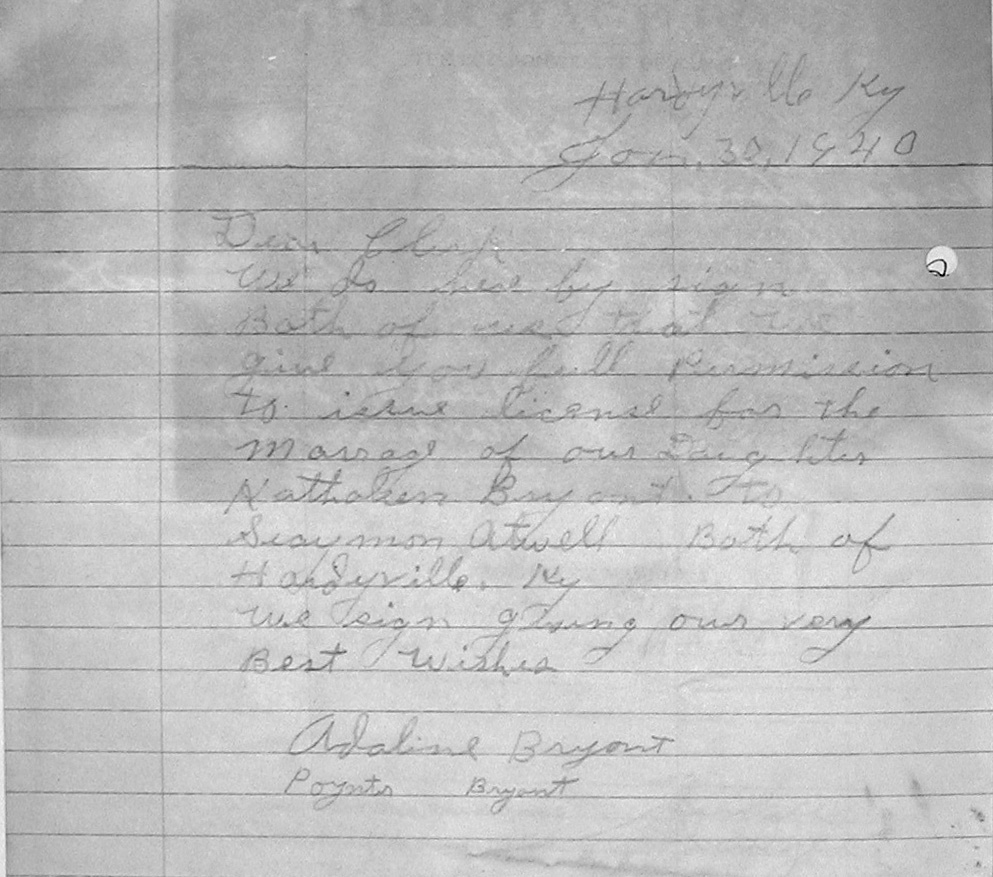 Hardyville Ky
Jan. 30, 1940
Dear Clerk
We do here by sign
Both of us that we
give you full Permission
to issue license for the
Marrage of our Daughter
Kathaleen Bryant. to
Seaymon Atwell Both of
Hardyville. Ky
We sign giving our very
Best Wishes
Adaline Bryant
Poynts Bryant